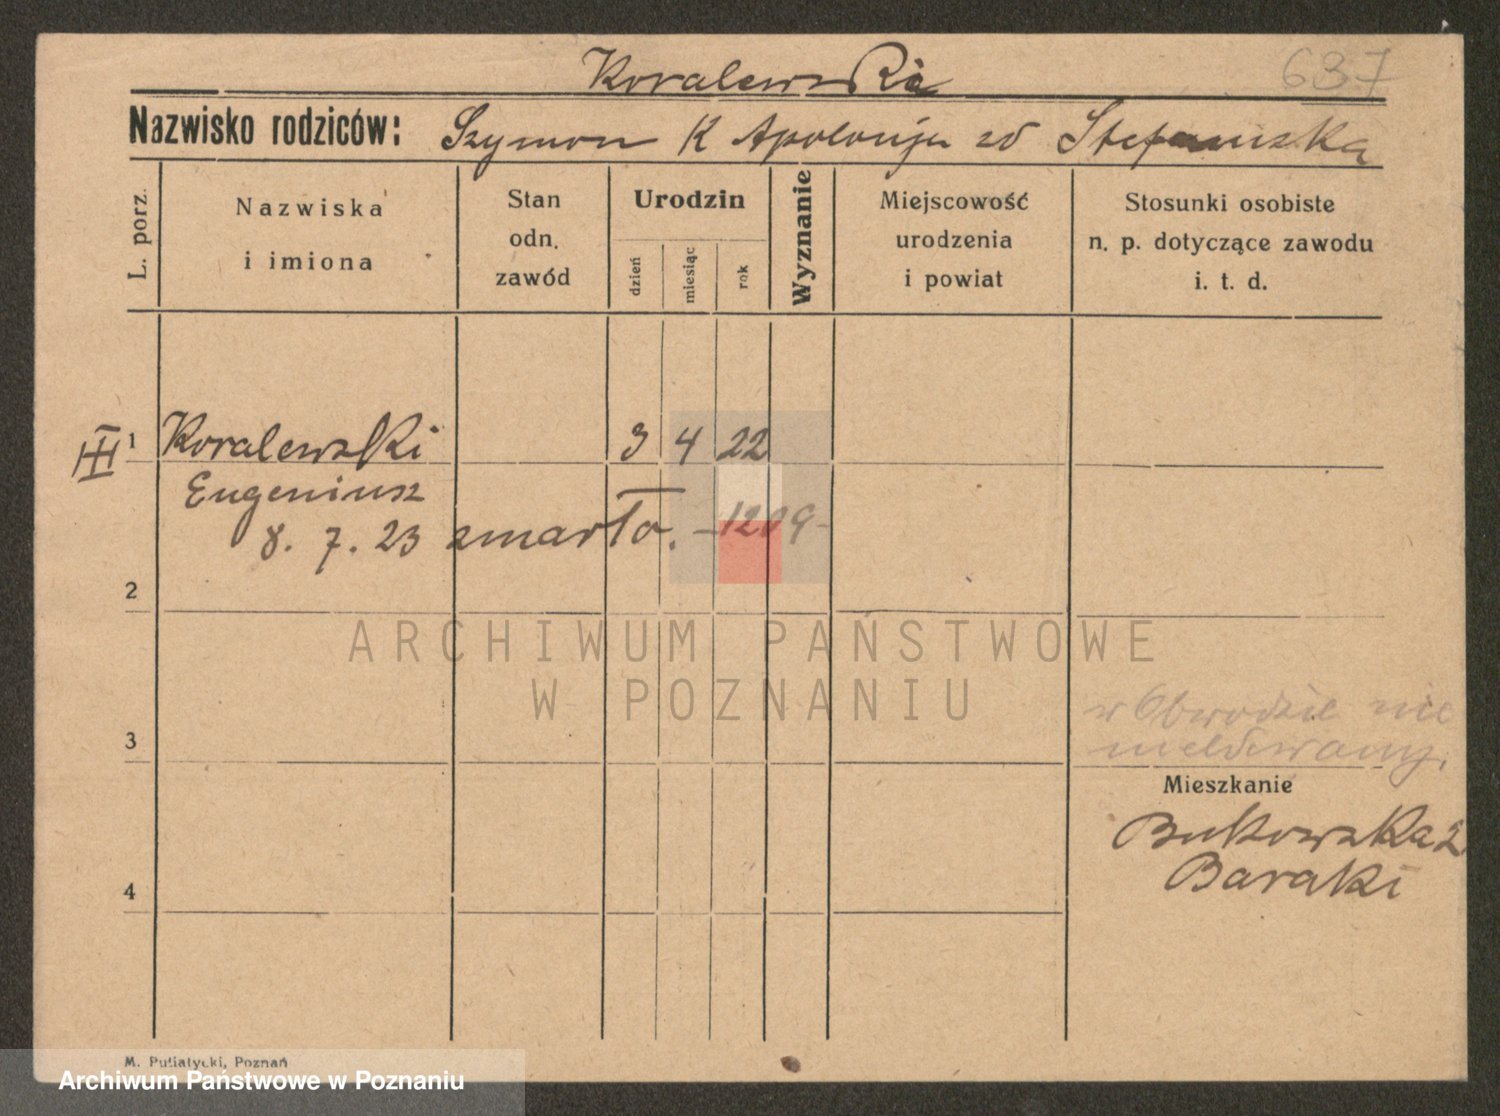 Koralewski
637
Nazwisko rodziców: Szymon K Apolonja zd Stefańska
L. porz.
Nazwiska
i imiona
Stan
odn.
zawód
Urodzin
dzień
miesiąc
rok
Wyznanie
Miejscowość
urodzenia
i powiat
Stosunki osobiste
n. p. dotyczące zawodu
i. t. d.
III 1 Koralewski 3 4 22
Eugeniusz
8. 7. 23 zmarło. -1209-
2
ARCHIWUM PAŃSTWOWE
W POZNANIU
w Obwodzie nie
meldowany.
3
Mieszkanie
Bukowska 2
Baraki
4
M. Putiatycki, Poznań
Archiwum Państwowe w Poznaniu